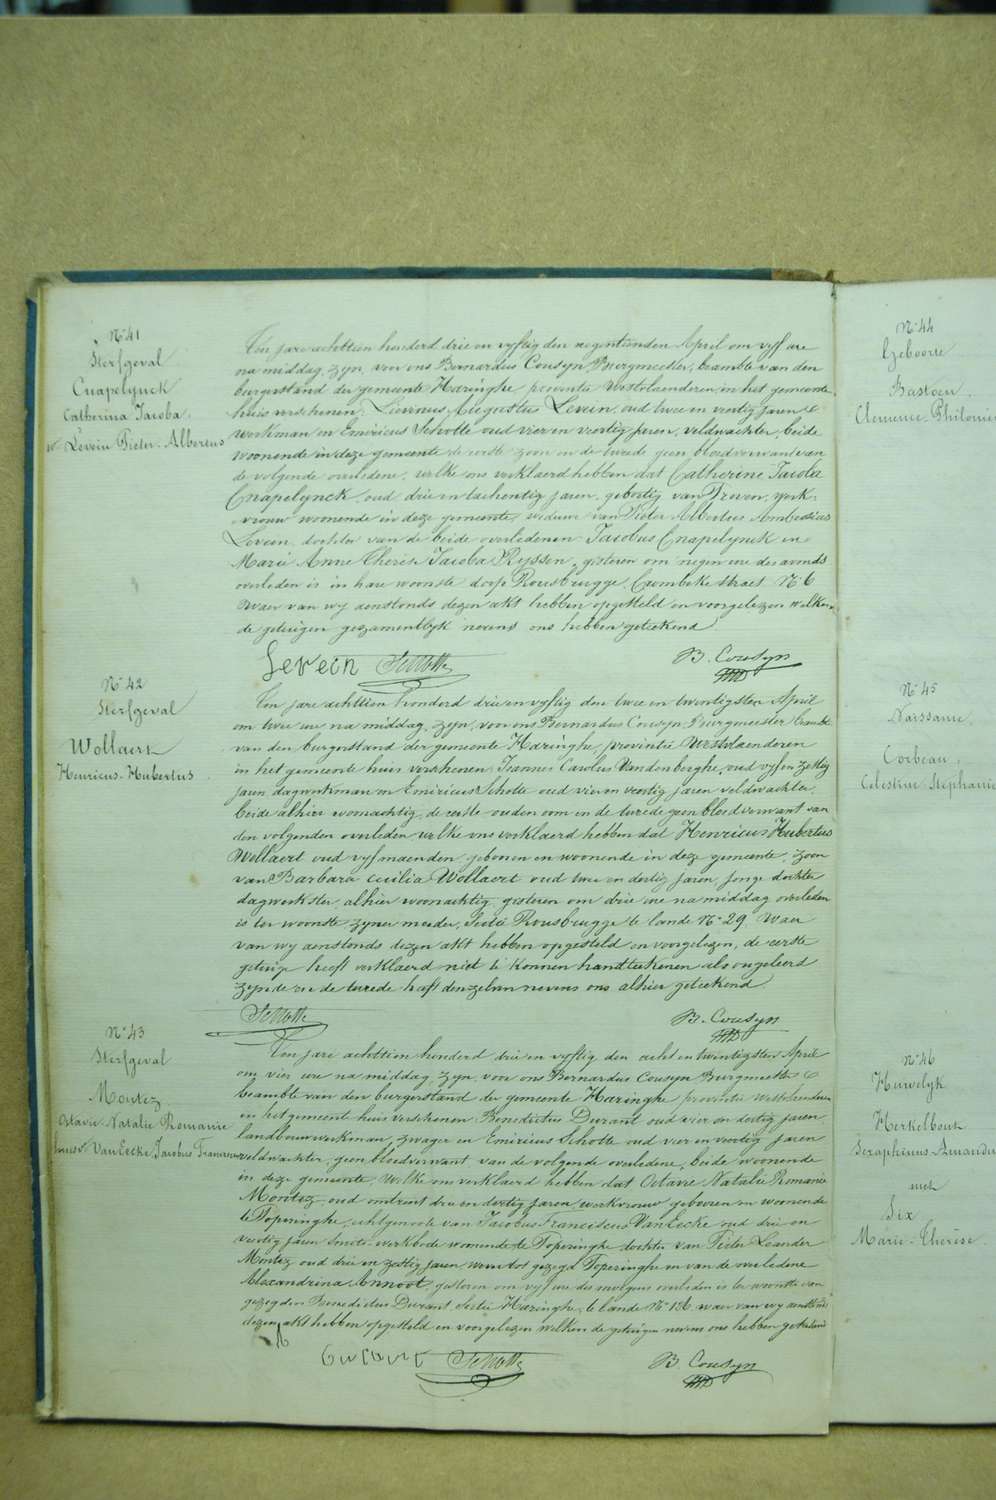 N° 41
Sterfgeval
Cnapelynck
Catherina Jacoba
we Levein Pieter-Albertus
Ten jare achttien honderd drie en vyftig den negentienden April om vyf ure
na middag, zyn, voor ons Bernardus Cousyn Burgmeester, beambte van den
burgerstand der gemeente Haringhe provintie Westvlaenderen, in het gemeente
huis verschenen, Livinus Augustus Levein, oud twee en veertig jaren
werkman en Emiricus Schotte oud vier en veertig Jaren, veldwachter, beide
woonende in deze gemeente de eerste zoon en de tweede geen bloedverwant van
de volgende overledene, welke ons verklaerd hebben dat Catherine Jacoba
Cnapelynck, oud drie en tachentig jaren, geboortig van Proven, werk-
vrouw woonende in deze gemeente, weduwe van Pieter Albertus Ambrosius
Levein, dochter van de beide overledenen Jacobus Cnapelynck en
Marie Anne Therese Jacoba Ryssen, gisteren om negen ure des avonds
overleden is in hare woonste dorp Rousbrugge, Crombeke straet N° 6
Waer van wy aenstonds dezen akt hebben opgesteld en voorgelezen welken
de getuigen gezamentlyk nevens ons hebben geteekend
Leveen Schotte B. Cousyn
N° 42
Sterfgeval
Wollaert
Henricus-Hubertus
Ten jare achttien honderd drie en vyftig den twee en twintigsten April
om twee ure na middag, zyn, voor ons Bernardus Cousyn Burgmeester beambte
van den burgerstand der gemeente Haringhe, provintie Westvlaenderen
in het gemeente huis verschenen, Joannes Carolus Vandenberghe, oud vyf en zestig
jaren dagwerkman en Emiricus Schotte oud vier en veertig jaren veldwachter,
beide alhier woonachtig, de eerste ouden oom en de tweede geen bloedverwant van
den volgenden overleden welke ons verklaerd hebben dat Henricus Hubertus
Wollaert oud vyf maenden, geboren en woonende in deze gemeente, zoon
van Barbara Cecilia Wollaert oud twee en dertig jaren, jonge dochter
dagwerkster, alhier woonachtig, gisteren om drie ure na middag overleden
is ter woonste zyner moeder, Sectie Rousbrugge te lande N° 29. Waer
van wy aenstonds dezen akt hebben opgesteld en voorgelezen, de eerste
getuige heeft verklaerd niet te konnen handteekenen als ongeleerd
zynde en de tweede heeft denzelven nevens ons alhier geteekend
Schotte B. Cousyn
N° 43
Sterfgeval
Montez
Octavie-Natalie Romanie
huisv. Van Eecke, Jacobus Franciscus
Ten jare achttien honderd drie en vyftig, den acht en twintigsten April
om vier ure na middag, zyn, voor ons Bernardus Cousyn Burgmeester
beambte van den burgerstand der gemeente Haringhe provintie Westvlaenderen
in het gemeente huis verschenen Benedictus Durant oud vier en dertig jaren
landbouwwerkman, zwager en Emiricus Schotte oud vier en veertig jaren
veldwachter, geen bloedverwant van de volgende overledene, beide woonende
in deze gemeente, Welke ons verklaerd hebben dat Octavie Natalie Romanie
Montez oud ontrent drie en dertig jaren, werkvrouw geboren en woonende
te Poperinghe, echtgenoote van Jacobus Franciscus Van Eecke oud drie en
veertig jaren werkbode woonende te Poperinghe dochter van Pieter Leander
Montez oud drie en zestig jaren wever tot gezegd Poperinghe en van de overledene
Alexandrina Annoot, gisteren om vyf ure des morgens overleden is ter woonste van
gezegden Benedictus Durant, Sectie Haringhe, te lande N° waer van wy aenstonds
dezen akt hebben opgesteld en voorgelezen welken de getuigen nevens ons hebben geteekend
Durant Schotte B. Cousyn
N° 44
Geboorte
Bastoen
Clemence-Philomène
N° 45
Naissance
Corbeau
Celestine-Stephanie
N° 46
Huwelyk
Herkelbout
Seraphinus-Amandus
met
Six
Marie-Therèse